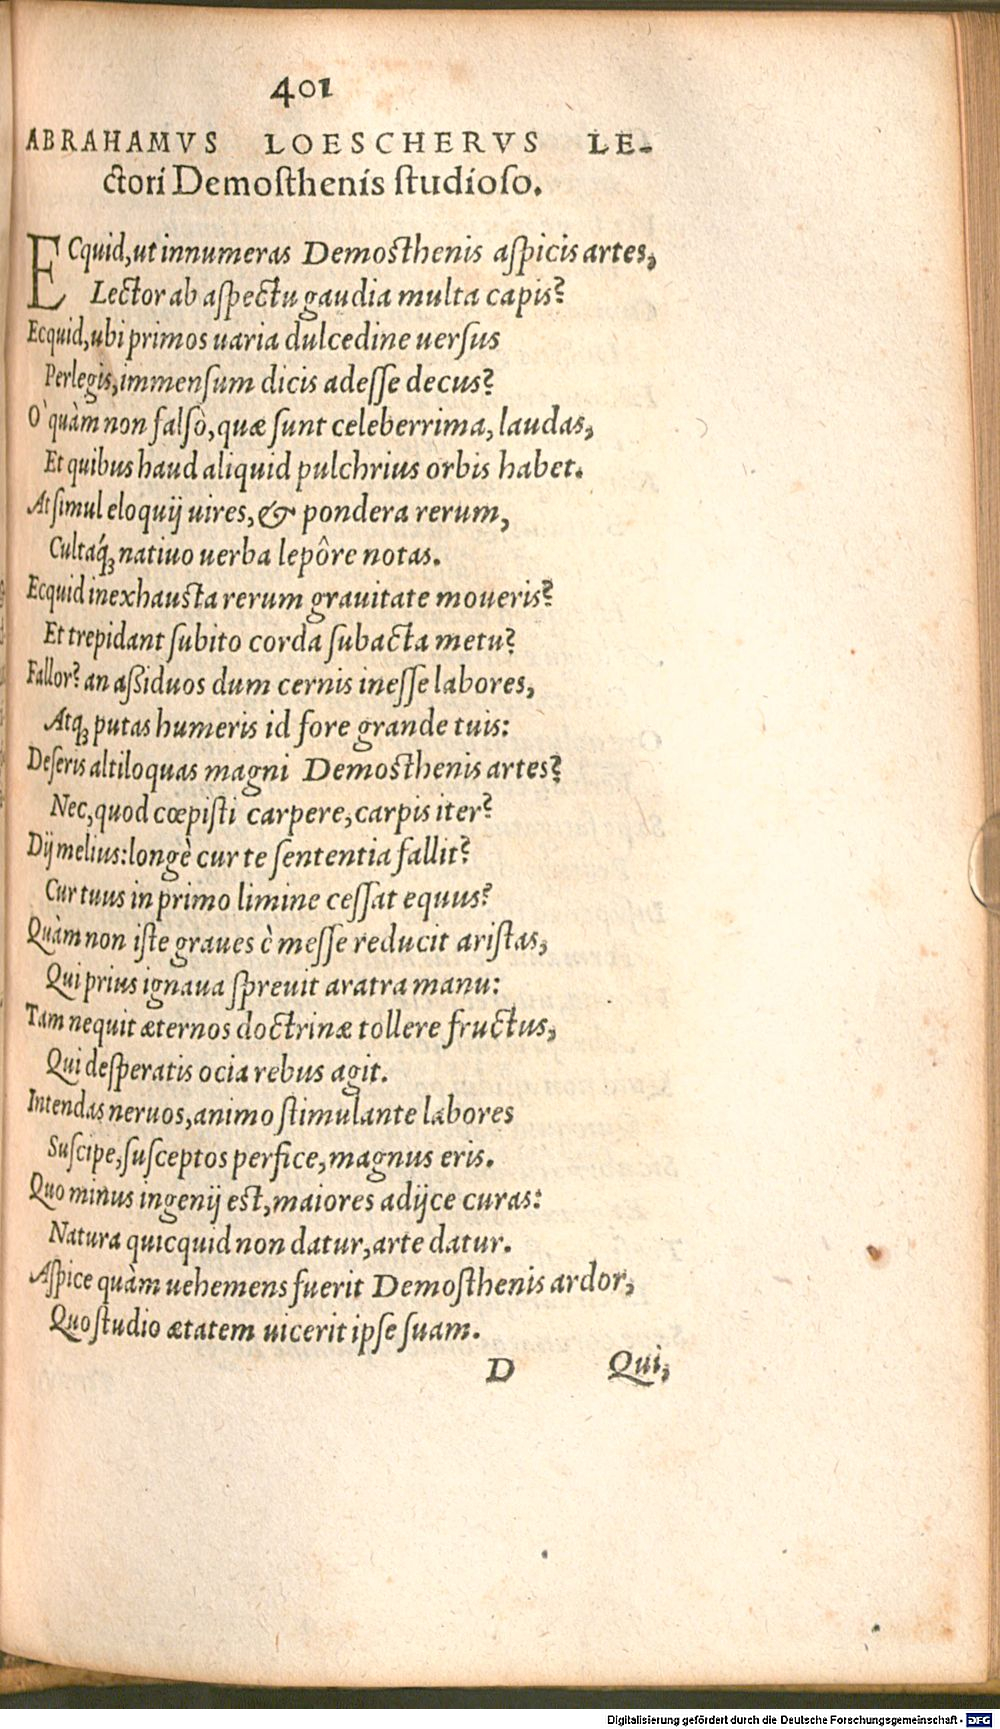 401
ABRAHAMVS LOESCHERVS LE-
ctori Demosthenis studioso.
ECquid, ut innumeras Demosthenis aspicis artes,
Lector ab aspectu gaudia multa capis?
Ecquid, ubi primos uaria dulcedine uersus
Perlegis, immensum dicis adesse decus?
O' quàm non falsò, quæ sunt celeberrima, laudas,
Et quibus haud aliquid pulchrius orbis habet.
At simul eloquij uires, & pondera rerum,
Cultaq́ꝫ natiuo uerba lepôre notas.
Ecquid inexhausta rerum grauitate moueris?
Et trepidant subito corda subacta metu?
Fallor? an aßiduos dum cernis inesse labores,
Atqꝫ putas humeris id fore grande tuis:
Deseris altiloquas magni Demosthenis artes?
Nec, quod cœpisti carpere, carpis iter?
Dij melius: longè cur te sententia fallit?
Cur tuus in primo limine cessat equus?
Quàm non iste graues è messe reducit aristas,
Qui prius ignaua spreuit aratra manu:
Tam nequit æternos doctrinæ tollere fructus,
Qui desperatis ocia rebus agit.
Intendas neruos, animo stimulante labores
Suscipe, susceptos perfice, magnus eris.
Quo minus ingenij est, maiores adijce curas:
Natura quicquid non datur, arte datur.
Aspice quàm uehemens fuerit Demosthenis ardor,
Quo studio ætatem uicerit ipse suam.
D Qui,
Digitalisierung gefördert durch die Deutsche Forschungsgemeinschaft - DFG